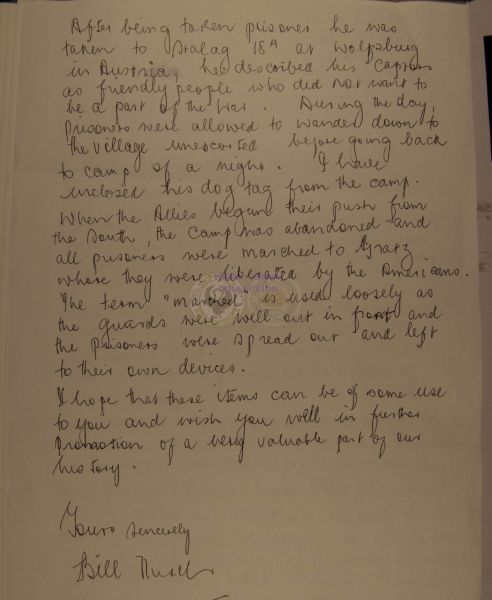 After being taken prisoner he was
taken to Stalag 18A at Wolfsburg
in Austria, he described his captors
as friendly people who did not want to
be a part of the War. During the day,
prisoners were allowed to wander down to
the village unescorted before going back
to camp of a night. I have
inclosed his dog tag from the camp.
When the Allies began their push from
the South, the camp was abandoned and
all prisoners were marched to Gratz
where they were liberated by the Americans.
The term "marched" is used loosely as
the guards were well out in front and
the prisoners were spread out and left
to their own devices.
I hope that these items can be of some use
to you and wish you well in further
promotion of a very valuable part of our
history.
Yours sincerely
Bill
COLLECTION